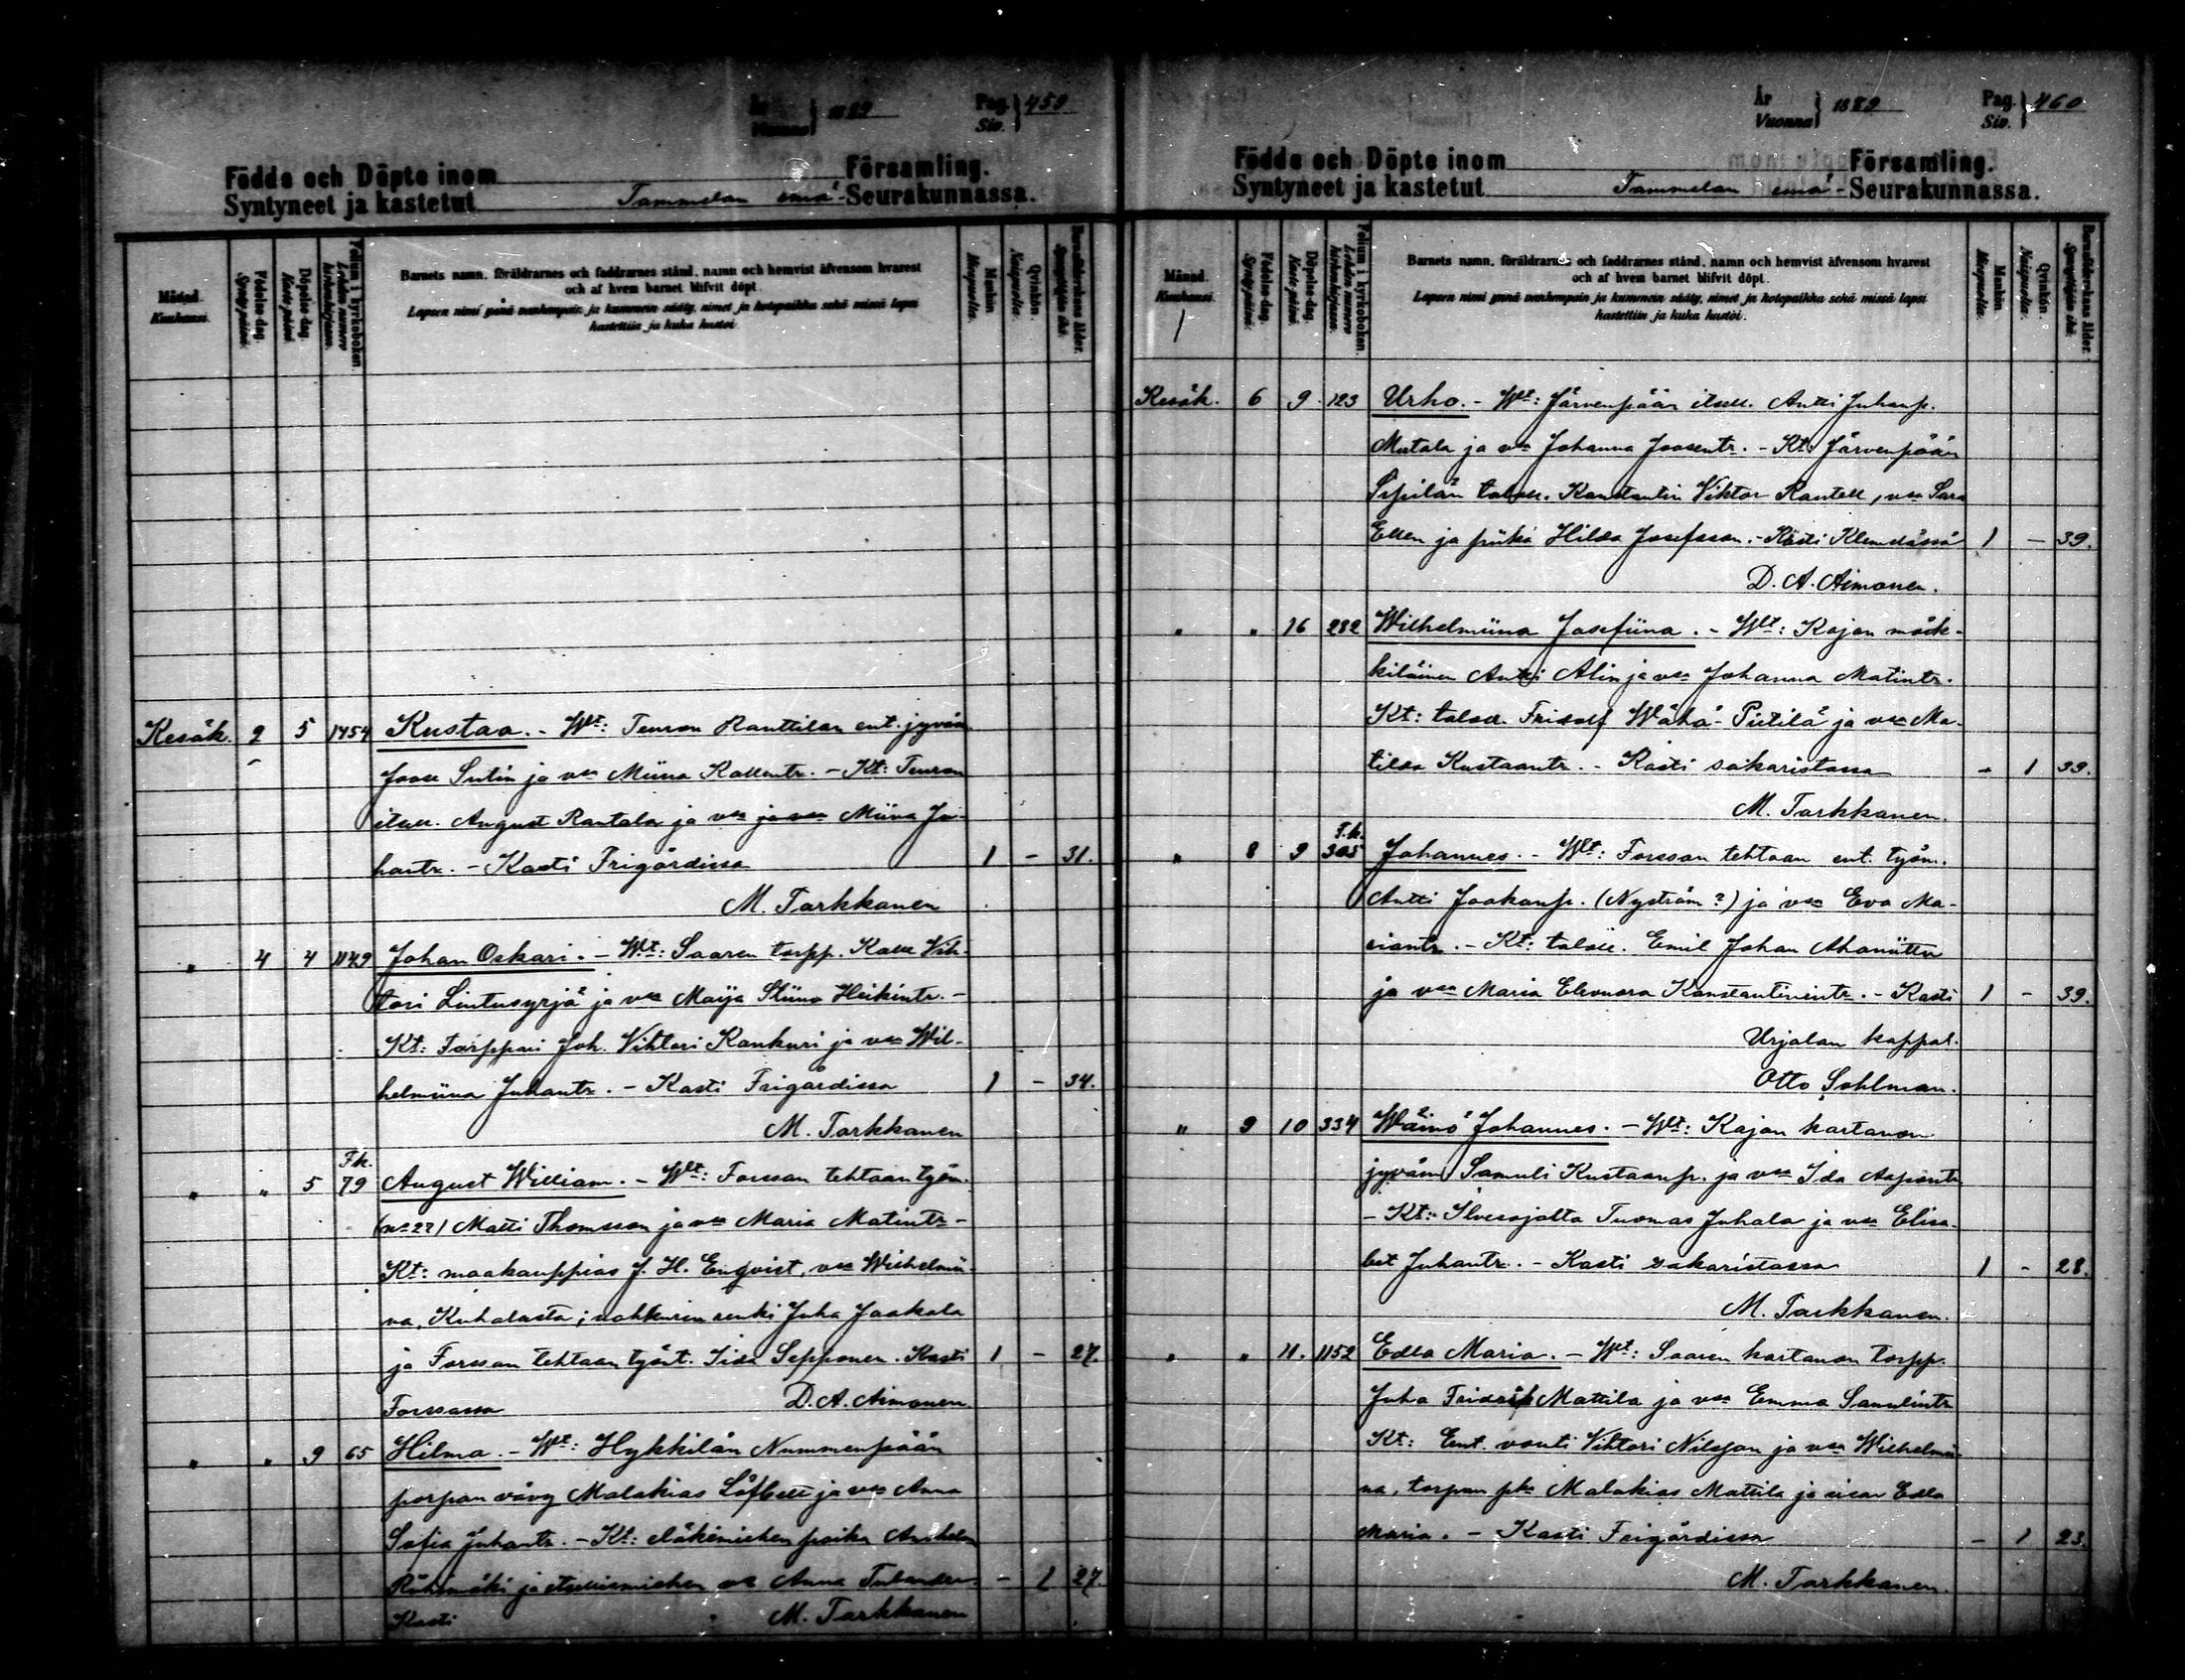 År
Vuonna } 1889 Pag.
Siv. } 459
Födde och Döpte inom Församling.
Syntyneet ja kastetut Tammelan emä- Seurakunnassa.
Månad.
Kuukausi.
Födelse-dag.
Synty-päivä.
Döpelse-dag.
Kaste-päivä.
Folium i kyrkoboken.
Lehden numero kirkonkirjassa.
Barnets namn, föräldrarnes och faddrarnes stånd, namn och hemvist äfvensom hvarest
och af hvem barnet blifvit döpt.
Lapsen nimi ynnä vanhempain ja kummein sääty, nimet ja kotopaikka sekä missä lapsi
kastettiin ja kuka kastoi.
Mankön.
Miespuolia.
Qvinkön.
Naispuolia.
Barnaföderskans ålder.
Synnyttäjän ikä.
Kesäk. 2 5 1454 Kustaa. - Wt: Teuron Ranttilan ent. jyväm
Joose Sutin ja va Miina Kallentr. - Kt: Teuron
itsell. August Rantala ja va ja va Miina Ju-
hantr. - Kasti Frigårdissa 1 - 31.
M. Tarkkanen
" 4 4 1149 Johan Oskari. - Wt: Saaren torpp. Kalle Vih-
tori Lintusyrjä ja va Maija Stiina Heikintr. -
Kt: Torppari Joh. Vihtori Kankuri ja va Wil-
helmiina Juhantr. - Kasti Frigårdissa 1 - 34.
M. Tarkkanen
" " 5 F.k. 79 August William. - Wt: Forssan tehtaan työm.
(no 22) Matti Thomsson ja va Maria Matintr -
Kt: maakauppias J. H. Enqvist, va Wilhelmii-
na, Kuhalasta; nahkurin renki Juha Jaakola
ja Forssan tehtaan työnt. Iida Sepponen. Kasti 1 - 27.
Forssassa D. A. Aimonen.
" " 9 65 Hilma. - Wt: Hykkilän Nummenpään
porpan vävy Malakias Löfbett ja va Anna
Sofia Juhantr. - Kt: eläkemiehen poika Anshelm
Riihimäki ja itsellismiehen va Anna - 1 27.
Kasti M. Tarkkanen
År
Vuonna } 1889 Pag.
Siv. } 460
Födde och Döpte inom Församling.
Syntyneet ja kastetut Tammelan emä- Seurakunnassa.
Månad.
Kuukausi.
Födelse-dag.
Synty-päivä.
Döpelse-dag.
Kaste-päivä.
Folium i kyrkoboken.
Lehden numero kirkonkirjassa.
Barnets namn, föräldrarnes och faddrarnes stånd, namn och hemvist äfvensom hvarest
och af hvem barnet blifvit döpt.
Lapsen nimi ynnä vanhempain ja kummein sääty, nimet ja kotopaikka sekä missä lapsi
kastettiin ja kuka kastoi.
Mankön.
Miespuolia.
Qvinkön.
Naispuolia.
Barnaföderskans ålder.
Synnyttäjän ikä.
Kesäk. 6 9 123 Urho. - Wt: Järvenpään itsell. Antti Juhanp.
Mutala ja va Johanna Joosentr. - Kt. Järvenpään
Sipilän taloll. Konstantin Viktor Rantell, va Sara
Ellen ja piika Hilda Josefsson. - Kasti Klemelässä 1 - 39.
D. A. Aimonen.
" " 16 282 Wilhelmiina Josefiina. - Wt: Kojon mök-
kiläinen Antti Alin ja va Johanna Matintr.
Kt: taloll. Fridolf Wähä-Pietilä ja va Ma-
tilda Kustaantr. - Kasti sakaristossa - 1 39.
M. Tarkkanen.
" 8 9 F.k. 305 Johannes. - Wt: Forssan tehtaan ent. työm.
Antti Jaakonp. (Nyström?) ja va Eva Ma-
siantr. - Kt: taloll. Emil Johan Ahoniittu
ja va Maria Eleonora Konstantinintr. - Kasti 1 - 39.
Urjalan kappal.
Otto Sohlman.
" 9 10 334 Wäinö Johannes. - Wt: Kojon kartanon
jyväm Samuli Kustaanp. ja va Ida Aapontr
- Kt: Ilvesojalta Tuomas Juhala ja va Elisa-
bet Juhantr. - Kasti sakaristossa 1 - 28.
M. Tarkkanen.
" " 11. 1152 Edla Maria. - Wt: Saaren kartanon torpp.
Juha Fridrik Mattila ja va Emma Samulintr
Kt: Ent. vouti Vihtori Nilsson ja va Wilhelmii-
na, torpan pka Malakias Mattila ja sisar Edla
Maria. - Kasti Frigårdissa - 1 23.
M. Tarkkanen.